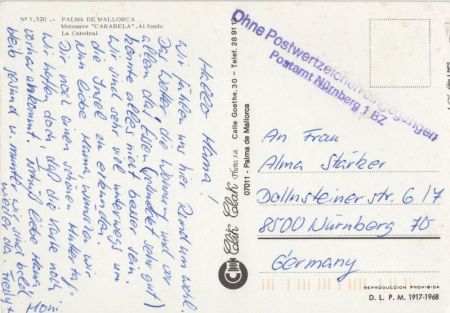 Nº 1.520 .- PALMA DE MALLORCA
Motonave "CARABELA". Al fondo
La Catedral
Hallo Mama!
Wir fühlen uns hier Rundum wohl.
Das Wetter, die Wohnung und vor
allem das Essen (schmeckt sehr gut)
könnte alles nicht besser sein.
Wir sind sehr viel unterwegs um
die Insel zu erkunden.
Nun liebe Mama, wünschen wir
Dir noch einen schönen Muttertag.
Wir hoffen doch daß die Karte noch
vorher ankommt. Tschüß liebe Mama
bleib gesund u. munter wir sind bald
wieder da.
Clik Clak Photo s.a. Calle Goethe, 30 - Telef. 28 91
07011 - Palma de Mallorca
Ohne Postwertzeichen eingegangen
Postamt Nürnberg 1 BZ
An Frau
Alma Stärker
Dollnsteiner str. 6 / 7
8500 Nürnberg 70
Germany
REPRODUCCION PROHIBIDA
D. L. P. M. 1917-1968